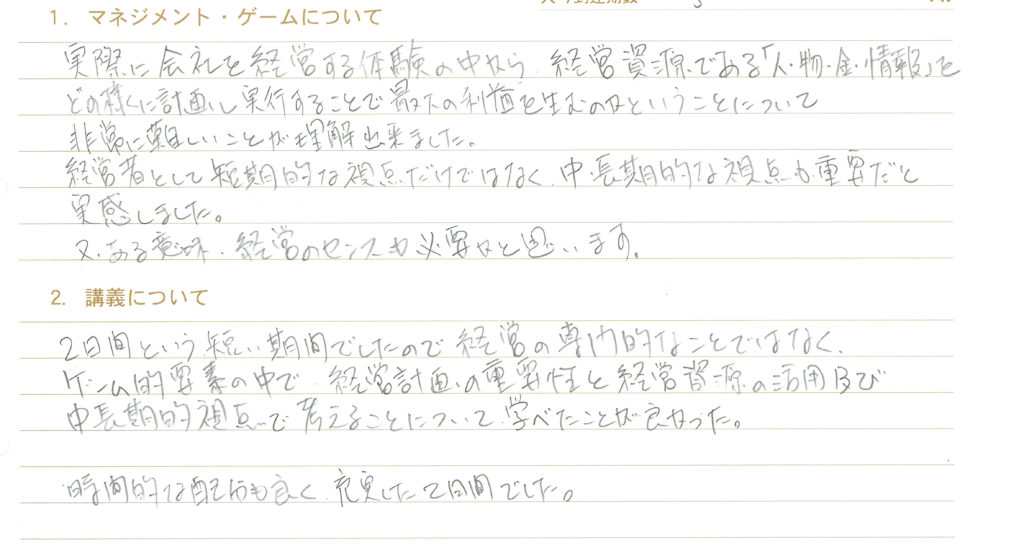 1. マネジメント・ゲームについて
実際に会社を経営する体験の中から、経営資源である「人・物・金・情報」を
どの様に計画し実行することで最大の利益を生むのかということについて
非常に難しいことが理解出来ました。
経営者として短期的な視点だけではなく、中・長期的な視点も重要だと
実感しました。
又、ある意味、経営のセンスも必要かと思います。
2. 講義について
2日間という短い期間でしたので経営の専門的なことではなく、
ゲーム的要素の中で、経営計画の重要性と経営資源の活用及び
中長期的視点で考えることについて学べたことが良かった。
時間的な配分も良く、充実した2日間でした。